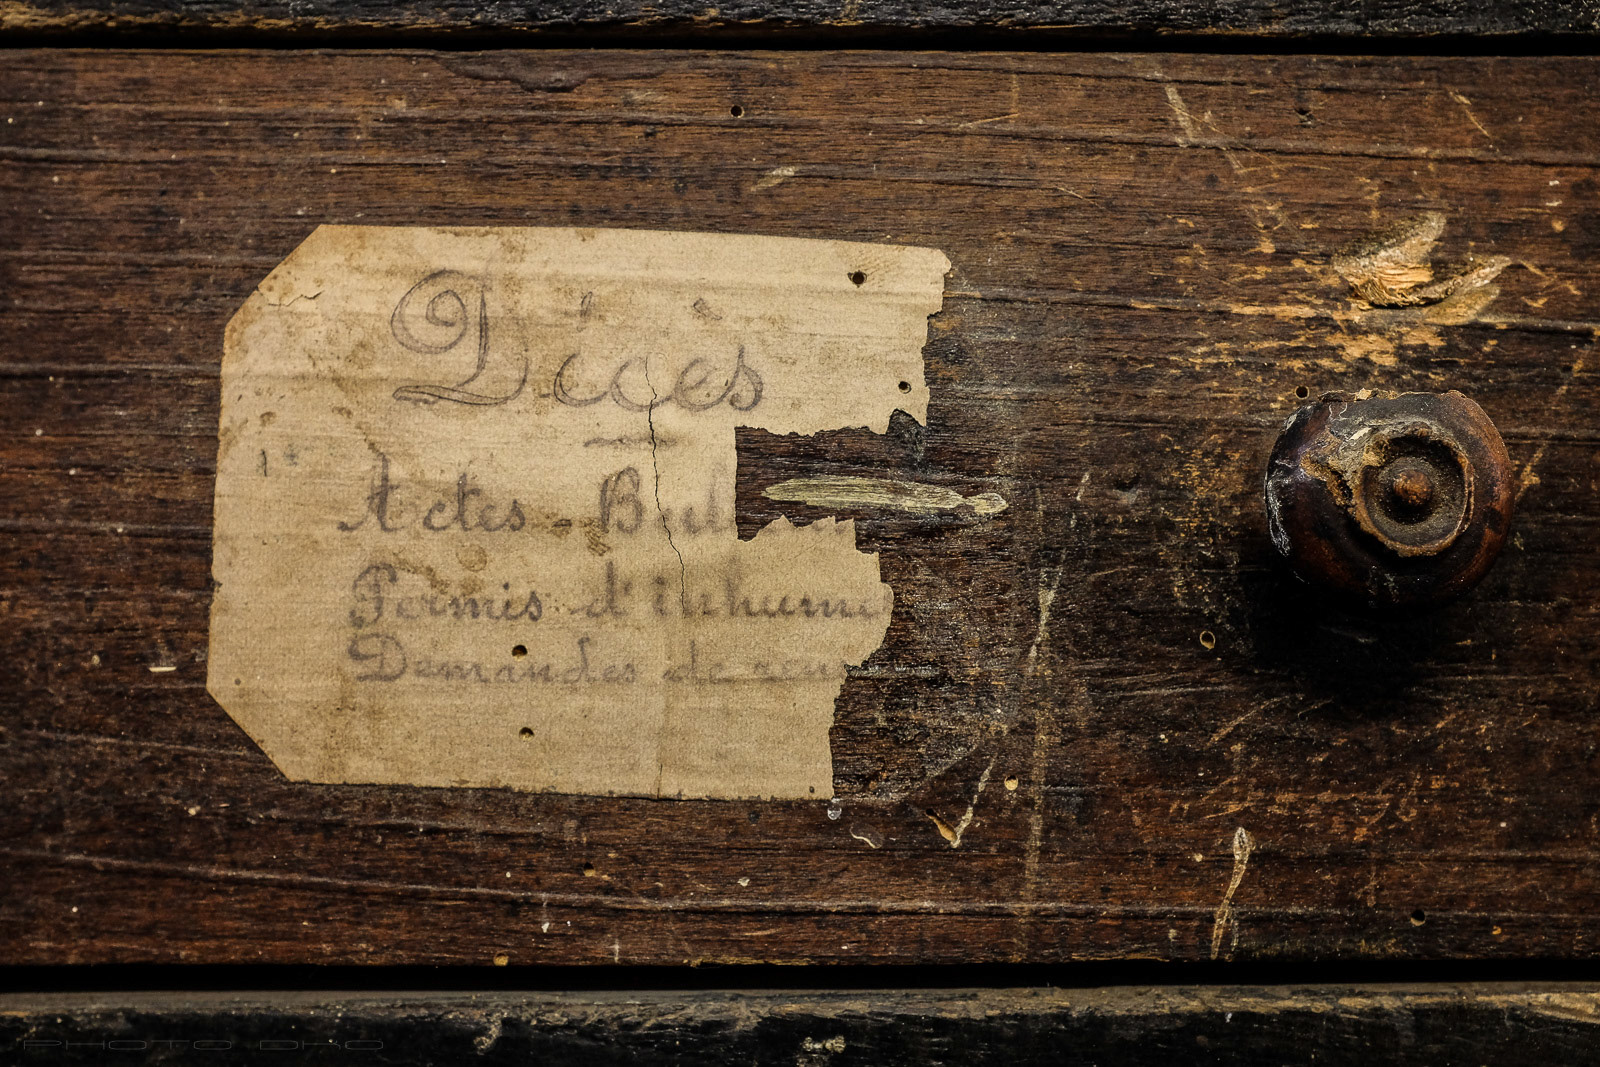 Décès
Actes - Bul
Permis d'inhume
Demandes de ren
PHOTO DKO